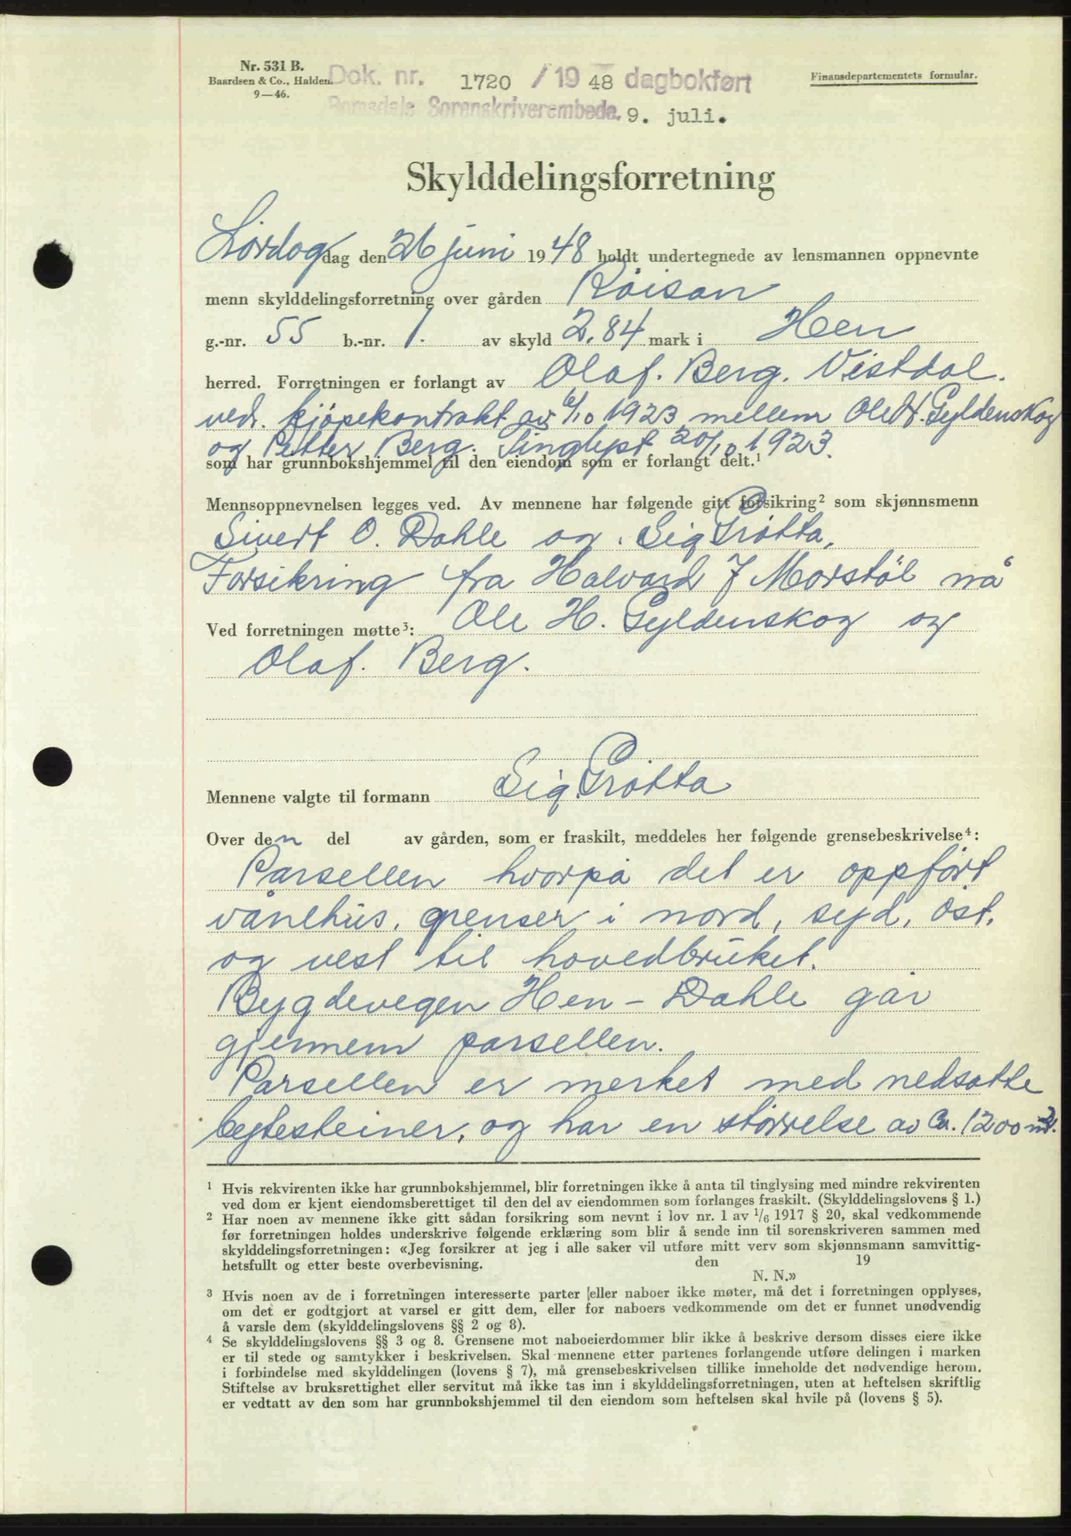 Nr. 531 B.
Baardsen & Co., Halden.
9—46.
Dok. nr. 1720 / 1948 dagbokført
Romsdals Sorenskriverembede. 9. juli.
Finansdepartementets formular.
Skylddelingsforretning
Lördag dag den 26 juni 1948 holdt undertegnede av lensmannen oppnevnte
menn skylddelingsforretning over gården Röisan
g.-nr. 55 b.-nr. 1. av skyld 2.84 mark i Hen
herred. Forretningen er forlangt av Olaf. Berg. Vistdal.
vedr. kjöpekontrakt av 6/10 1923 mellem Ole H. Gyldenskog
og Petter Berg. Tinglyst 20/10 1923.
som har grunnbokshjemmel til den eiendom som er forlangt delt.¹
Mennsoppnevnelsen legges ved. Av mennene har følgende gitt forsikring² som skjønnsmenn
Sivert O. Dahle og. Sig Grötta,
Forsikring fra Halvard J Morstöl nå
Ved forretningen møtte³: Ole H. Gyldenskog og
Olaf. Berg.
Mennene valgte til formann Sig. Grötta
Over den del av gården, som er fraskilt, meddeles her følgende grensebeskrivelse⁴:
Parsellen hvorpå det er oppfört
vånehus, grenser i nord, syd, öst,
og vest til hovedbruket.
Bygdevegen Hen - Dahle går
gjennem parsellen.
Parsellen er merket med nedsatte
bytesteiner, og har en störrelse av ca. 1200 m².
¹ Hvis rekvirenten ikke har grunnbokshjemmel, blir forretningen ikke å anta til tinglysing med mindre rekvirenten
ved dom er kjent eiendomsberettiget til den del av eiendommen som forlanges fraskilt. (Skylddelingslovens § 1.)
² Har noen av mennene ikke gitt sådan forsikring som nevnt i lov nr. 1 av 1/6 1917 § 20, skal vedkommende
før forretningen holdes underskrive følgende erklæring som blir å sende inn til sorenskriveren sammen med
skylddelingsforretningen: «Jeg forsikrer at jeg i alle saker vil utføre mitt verv som skjønnsmann samvittig-
hetsfullt og etter beste overbevisning. den 19
N. N.»
³ Hvis noen av de i forretningen interesserte parter eller naboer ikke møter, må det i forretningen opplyses,
om det er godtgjort at varsel er gitt dem, eller for naboers vedkommende om det er funnet unødvendig
å varsle dem (skylddelingslovens §§ 2 og 8).
⁴ Se skylddelingslovens §§ 3 og 8. Grensene mot naboeierdommer blir ikke å beskrive dersom disses eiere ikke
er til stede og samtykker i beskrivelsen. Skal mennene etter partenes forlangende utføre delingen i marken
i forbindelse med skylddelingen (lovens § 7), må grensebeskrivelsen tillike inneholde det nødvendige herom.
Stiftelse av bruksrettighet eller servitut må ikke tas inn i skylddelingsforretningen, uten at heftelsen skriftlig
er vedtatt av den som har grunnbokshjemmel til den eiendom som heftelsen skal hvile på (lovens § 5).